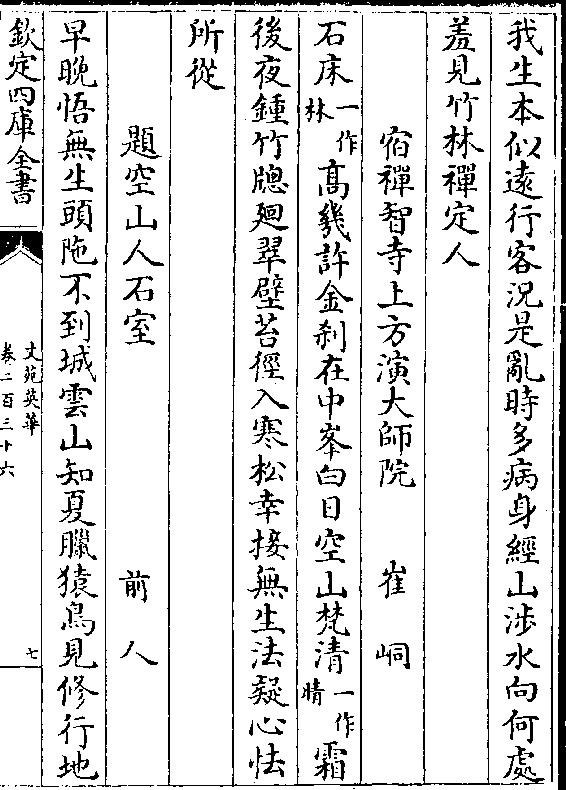 我生本似遠行客況是亂時多病身經山涉水向何處
羞見竹林禪定人
宿禪智寺上方演大師院 崔峒
石床一作林高幾許金刹在中峯白日空山梵清一作晴霜
後夜鍾竹牕廻翠壁苔徑入寒松幸接無生法疑心怯
所從
題空山人石室 前人
早晚悟無生頭陁不到城雲山知夏臘猿鳥見修行地
欽定四庫全書
文苑英華
卷二百三十六
七